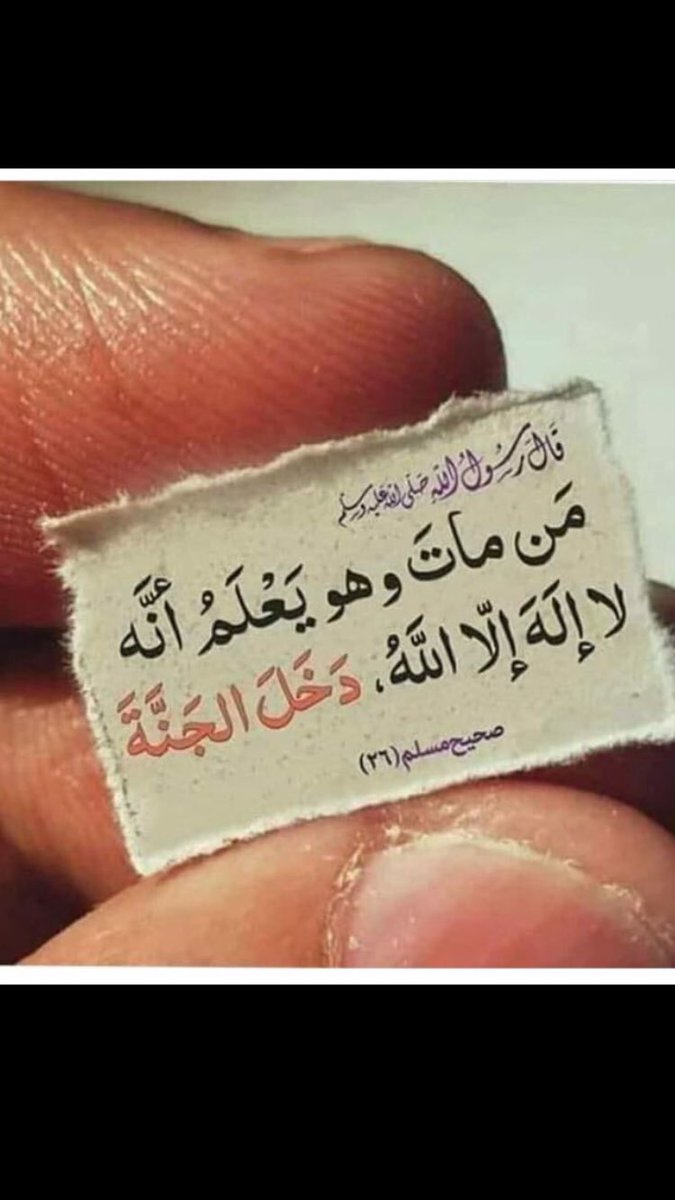 قَالَ رَسُولُ اللهِ صَلَّى اللهُ عَلَيْهِ وَسَلَّمَ
مَن ماتَ وهو يَعْلَمُ أنَّه
لا إلَهَ إلّا اللَّهُ، دَخَلَ الجَنَّةَ
صحيح مسلم (٢٦)